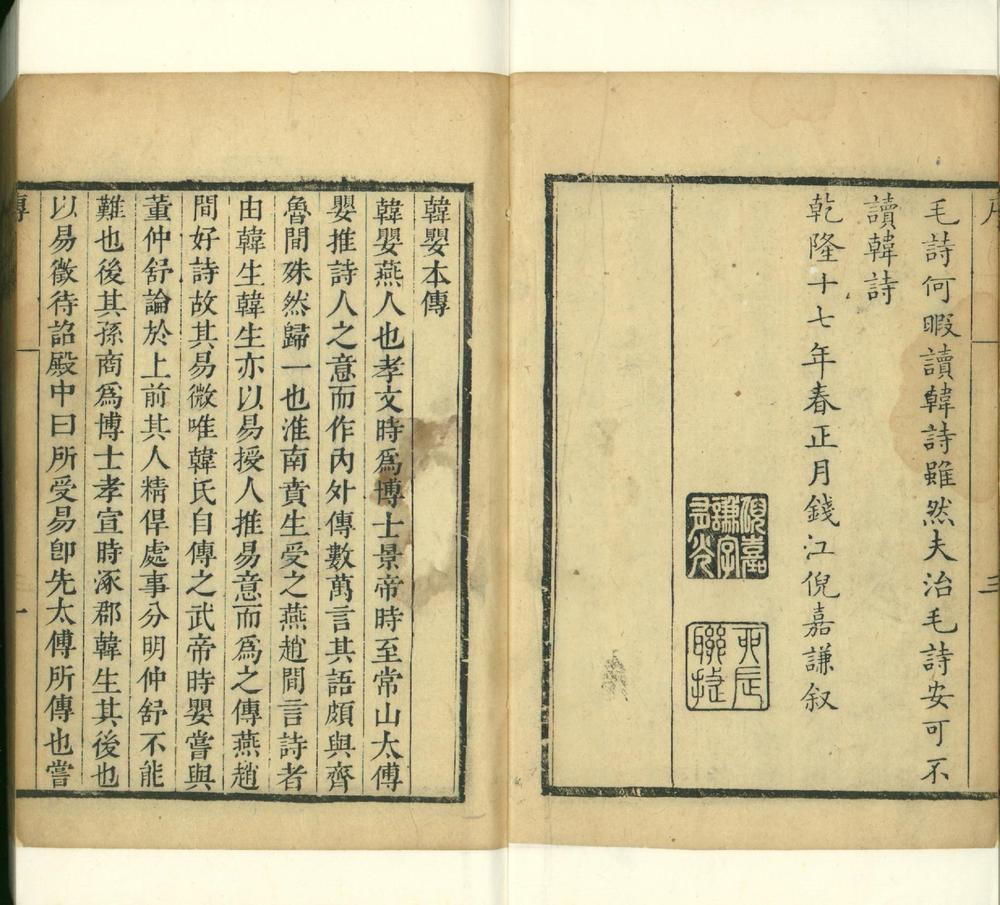 序
三
毛詩何暇讀韓詩雖然夫治毛詩安可不
讀韓詩
乾隆十七年春正月錢江倪嘉謙叙
倪嘉
謙字
辰
聯捷
韓嬰本傳
韓嬰燕人也孝文時爲博士景帝時至常山太傅
嬰推詩人之意而作內外傳數萬言其語頗與齊
魯間殊然歸一也淮南賁生受之燕趙間言詩者
由韓生韓生亦以易授人推易意而爲之傳燕趙
間好詩故其易微唯韓氏自傳之武帝時嬰嘗與
董仲舒論於上前其人精悍處事分明仲舒不能
難也後其孫商爲博士孝宣時涿郡韓生其後也
以易徵待詔殿中曰所受易卽先太傅所傳也嘗
傳
一